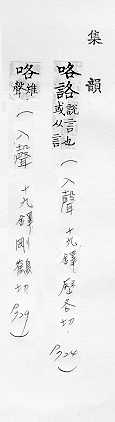 集韻
咯詻訟言也或从言(入聲 十九鐸 歷各切 P724)
咯雉聲(入聲 十九鐸 剛鶴切 P729)